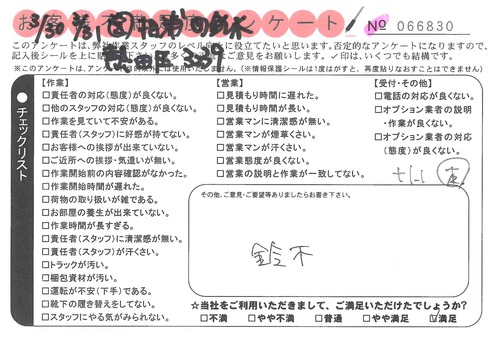 お客様不満度アンケート
No 066830
3/30 3/31
鈴木
このアンケートは、弊社作業スタッフのレベル向上に役立てたいと思います。否定的なアンケートになりますので、
ご意見をお願いします。✓印は、いくつでも結構です。
(※情報保護シールは1度がすと、再度貼りなおすことはできません)
チェックリスト
【作業】
□責任者の対応(態度)が良くない。
□他のスタッフの対応(態度)が良くない。
□作業を見ていて不安がある。
□責任者(スタッフ)に好感が持てない。
□お客様への挨拶が出来ていない。
□ご近所への挨拶・気遣いが無い。
□作業開始前の内容確認がなかった。
□作業開始時間が遅れた。
□荷物の取り扱いが雑である。
□お部屋の養生が出来ていない。
□作業時間が長すぎる。
□責任者(スタッフ)に清潔感が無い。
□責任者(スタッフ)が汗くさい。
□トラックが汚い。
□梱包資材が汚い。
□運転が不安(下手)である。
□靴下の履き替えをしてない。
□スタッフにやる気がみられない。
【営業】
□見積もり時間に遅れた。
□見積もり時間が長い。
□営業マンに清潔感が無い。
□営業マンが煙草くさい。
□営業マンが汗くさい。
□営業態度が良くない。
□営業の説明と作業が一致してない。
【受付・その他】
□電話の対応が良くない。
□オプション業者の説明
・作業が良くない。
□オプション業者の対応
(態度)が良くない。
その他、ご意見・ご要望等ありましたらお書き下さい。
鈴木
☆当社をご利用いただきまして、ご満足いただけたでしょうか?
□不満 □やや不満 □普通 □やや満足 ☑満足